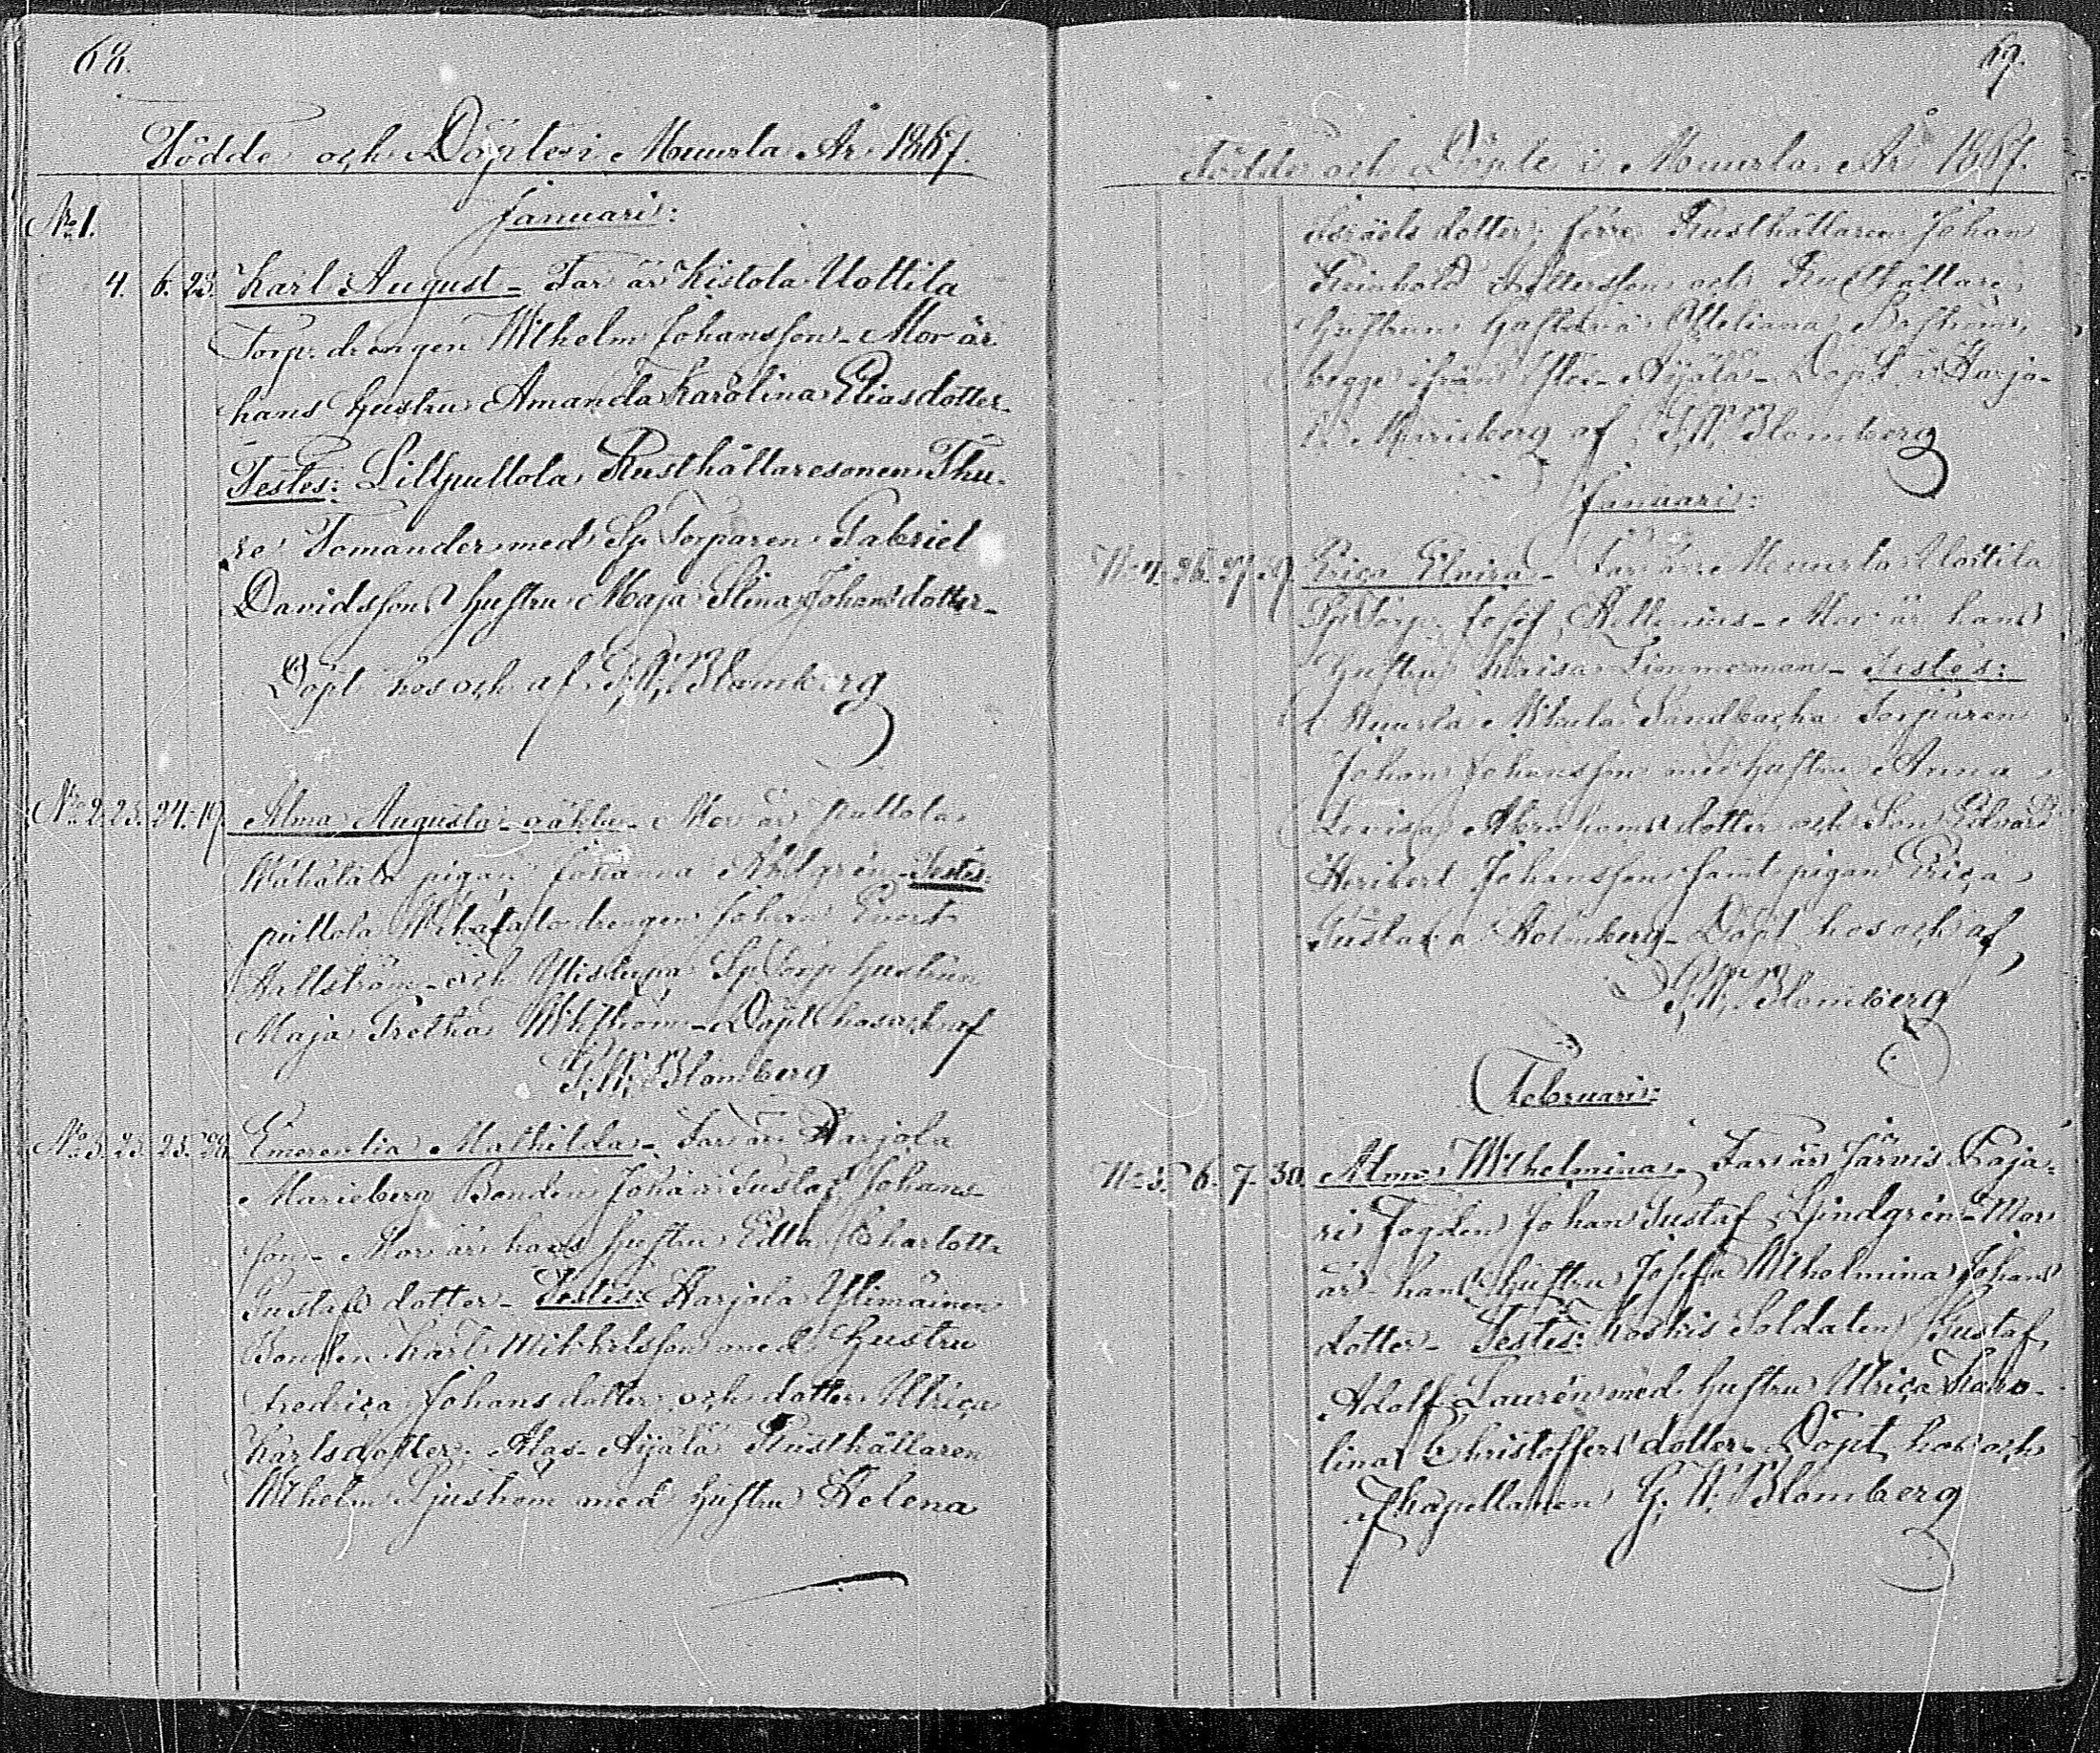 68.
Födde och Döpte i Muurla År 1867.
Januari:
No 1.
4. 6. 23. Karl August - Far är Kistola Uottila
Torp. drengen Wilhelm Johansson - Mor är
hans hustru Amanda Karolina Eliasdotter.
Testes: Lillpullola Rusthållaresonen Thu-
re Tomander med Sp Torparen Gabriel
Davidssons hustru Maja Stina Johansdotter -
Döpt hos och af G. W. Blomberg
No 2. 23. 24. 19. Alma Augusta - oäkta - Mor är pullola
Wähätalo pigan Johanna Ahlgrén - Testes:
pullola Wähätalo drengen Johan Evert
Hallström och Ylistupa Sp Torp hustrun
Maja Gretha Wikström - Döpt hos och af
G. W. Blomberg
No 3. 23. 25. 28. Emerentia Mathilda - Far är Harjola
Marieberg Bonden Johan Gustaf Johans-
son - Mor är hans hustru Edla Charlotta
Gustafs dotter - Testes: Harjola Ylimäinen
Bonden Karl Mikkelsson med hustru
Fredrica Johansdotter och dotter Ulrica
Karlsdotter; Alas-Äijälä Rusthållaren
Wilhelm Ljuström med hustru Helena
69.
Födde och Döpte i Muurla År 1867.
Israels dotter; förre Rusthållaren Johan
Reinhold och Rusthållare
hustrun Gustava
begge ifrån Yles-Äijälä - Döpt i Harjo-
la Marieberg af G. W. Blomberg
Januari:
No 4. 26. 27. 29. Erica Elvira - Far är Muurla Uotila
Sp Torp. Josef Hellenius - Mor är hans
hustru Kaisa Timmerman - Testes:
Muurla Sandbacka Torparen
Johan Johansson med hustru Anna
Lovisa Abrahamsdotter och Son Edvard
Heribert Johansson samt pigan Erica
Gustafva Holmberg - Döpt hos och af
G. W. Blomberg
Februari:
No 5. 6. 7. 30. Alma Wilhelmina - Far är Järvis Paja-
ri Fogden Johan Gustaf Lindgrén - Mor
är hans hustru Josefa Wilhelmina Johans
dotter - Testes: Koskis Soldaten Gustaf
Adolf Laurén med hustru Ulrica Karo-
lina Christoffers dotter - Döpt hos och
af Kapellanen G. W. Blomberg